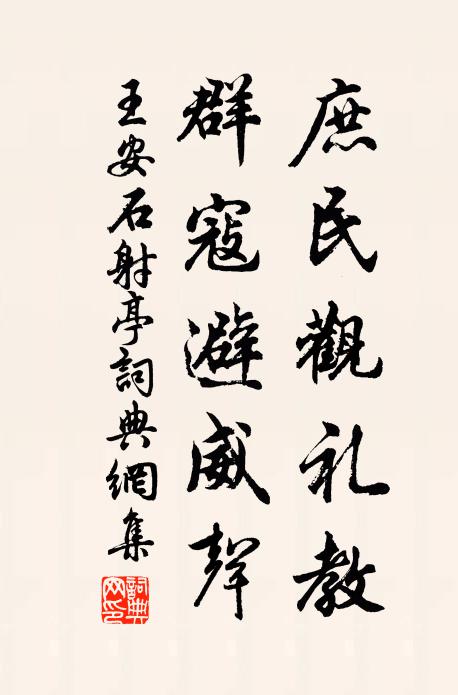 庶民觀礼教
群寇避威聲
王安石射亭詞典網集
詞典
网印